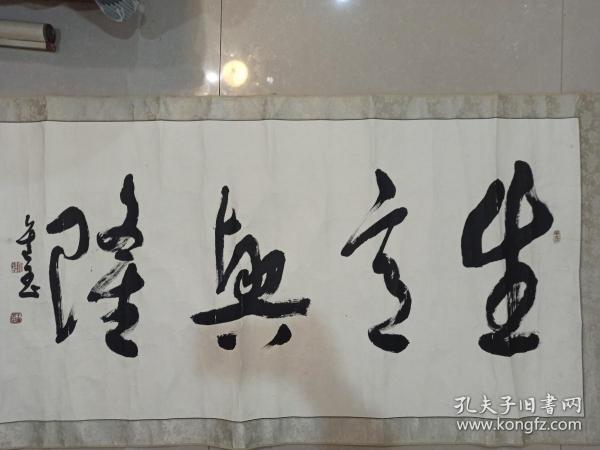 生意興隆
孔夫子旧書网
www.kongfz.com